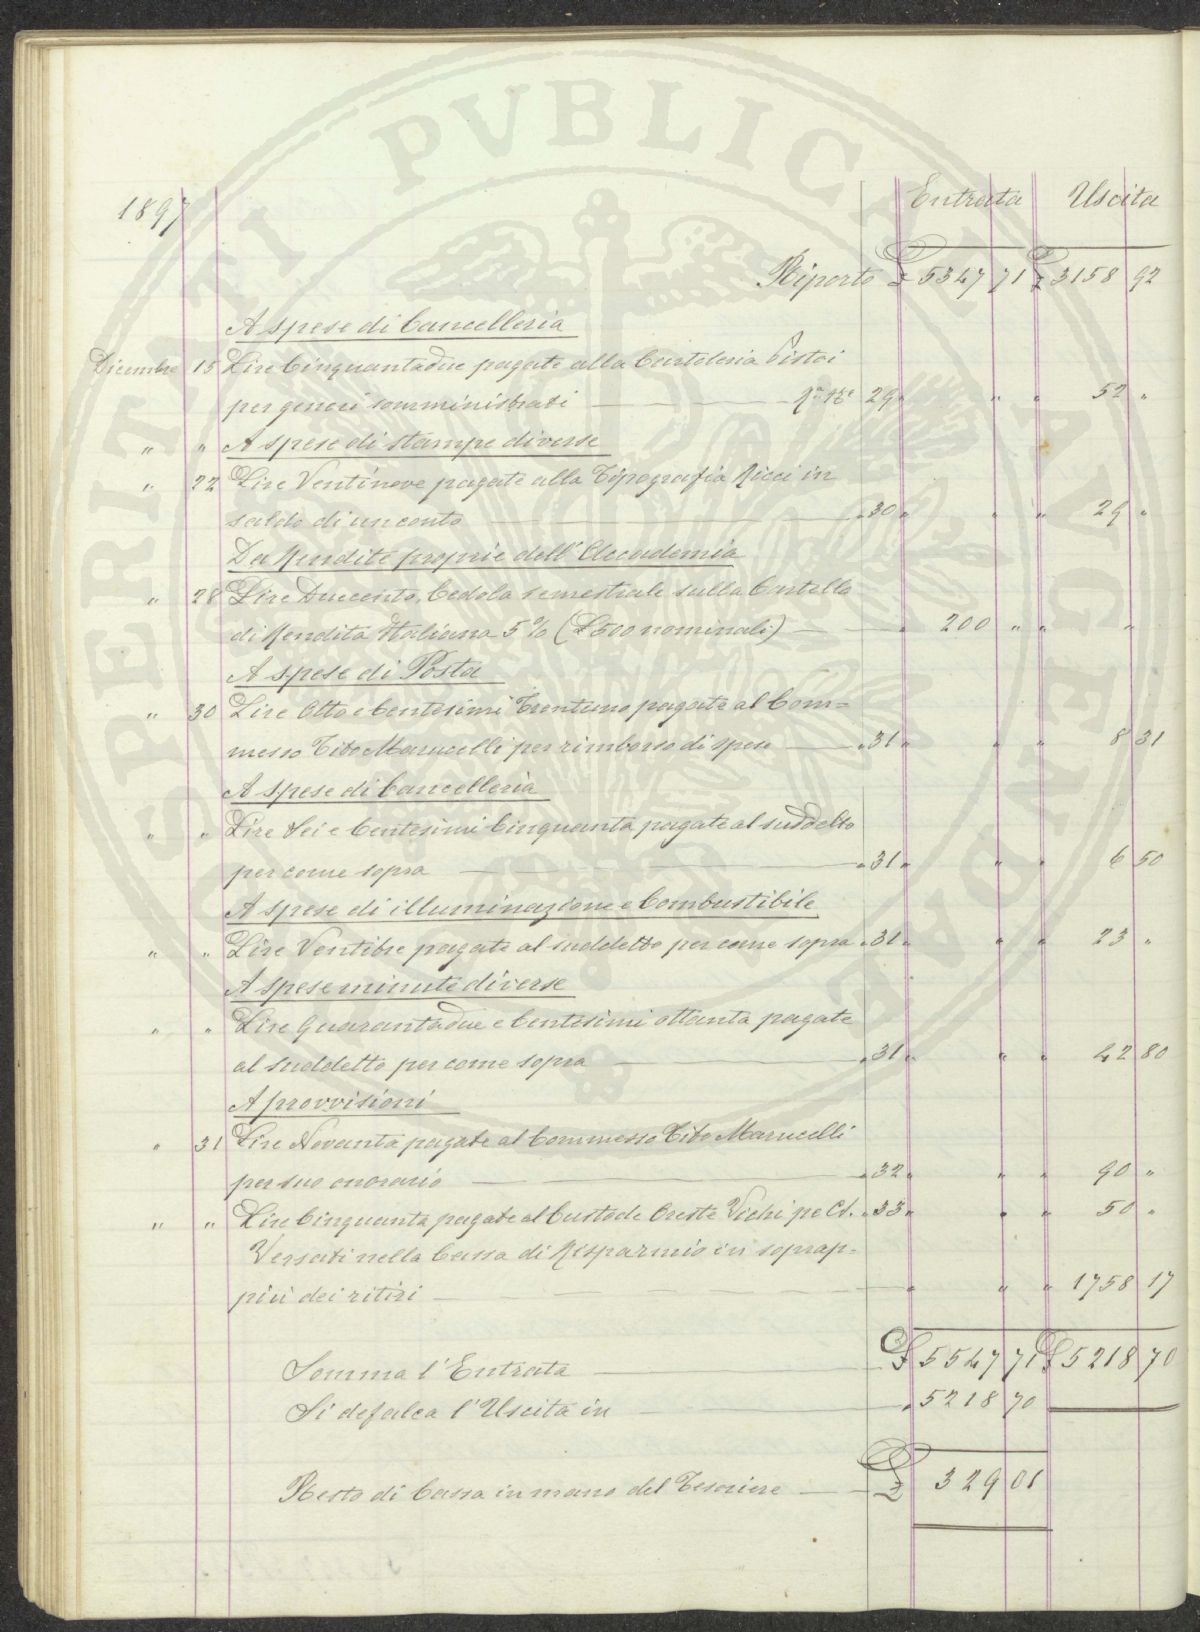 1897 Entrata Uscita
Riporto £ 5347 71 £ 3158 92
A spese di Cancelleria
Dicembre 15 Lire Cinquantadue pagate alla Cartoleria Pistoi
per generi somministrati 29 " " " 52 "
" " A spese di stampe diverse
" 22 Lire Ventinove pagate alla Tipografia Ricci in
saldo di un conto " 30 " " " 29 "
Da Rendite proprie dell'Accademia
" 28 Lire Duecento, Cedola semestrale sulla Cartella
di Rendita Italiana 5% (£ 500 nominali) " 200 " " "
A spese di Posta
" 30 Lire Otto e Centesimi Trentuno pagate al Com=
messo Tito Marucelli per rimborso di spese " 31 " " " 8 31
A spese di Cancelleria
" " Lire Sei e Centesimi Cinquanta pagate al suddetto
per come sopra " 31 " " " 6 50
A spese di illuminazione e Combustibile
" " Lire Ventitre pagate al suddetto per come sopra " 31 " " " 23 "
A spese minute diverse
" " Lire Quarantadue e Centesimi ottanta pagate
al suddetto per come sopra " 31 " " " 42 80
A provvisioni
" 31 Lire Novanta pagate al Commesso Tito Marucelli
per suo onorario " 32 " " " 90 "
" " Lire Cinquanta pagate al Custode Oreste Vichi pe Cs. " 33 " " " 50 "
Versati nella Cassa di Risparmio in soprap-
più dei ritiri " " " 1758 17
Somma l'Entrata £ 5547 71 £ 5218 70
Si defalca l'Uscita in " 5218 70
Resto di Cassa in mano del Tesoriere £ 329 01
PROSPERITATI PVBLICAE AVGENDAE